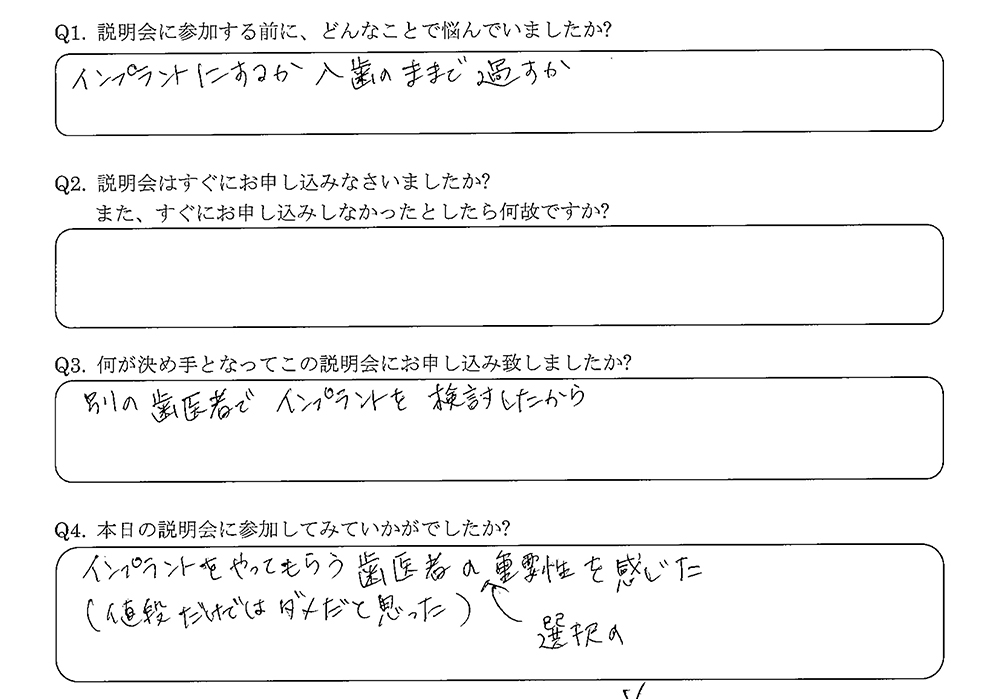 Q1. 説明会に参加する前に、どんなことで悩んでいましたか?
インプラントにするか 入歯のままで 過すか
Q2. 説明会はすぐにお申し込みなさいましたか?
また、すぐにお申し込みしなかったとしたら何故ですか?
Q3. 何が決め手となってこの説明会にお申し込み致しましたか?
別の歯医者で インプラントを 検討したから
Q4. 本日の説明会に参加してみていかがでしたか?
インプラントをやってもらう 歯医者の重要性を感じた
(値段だけではダメだと思った)
選択の